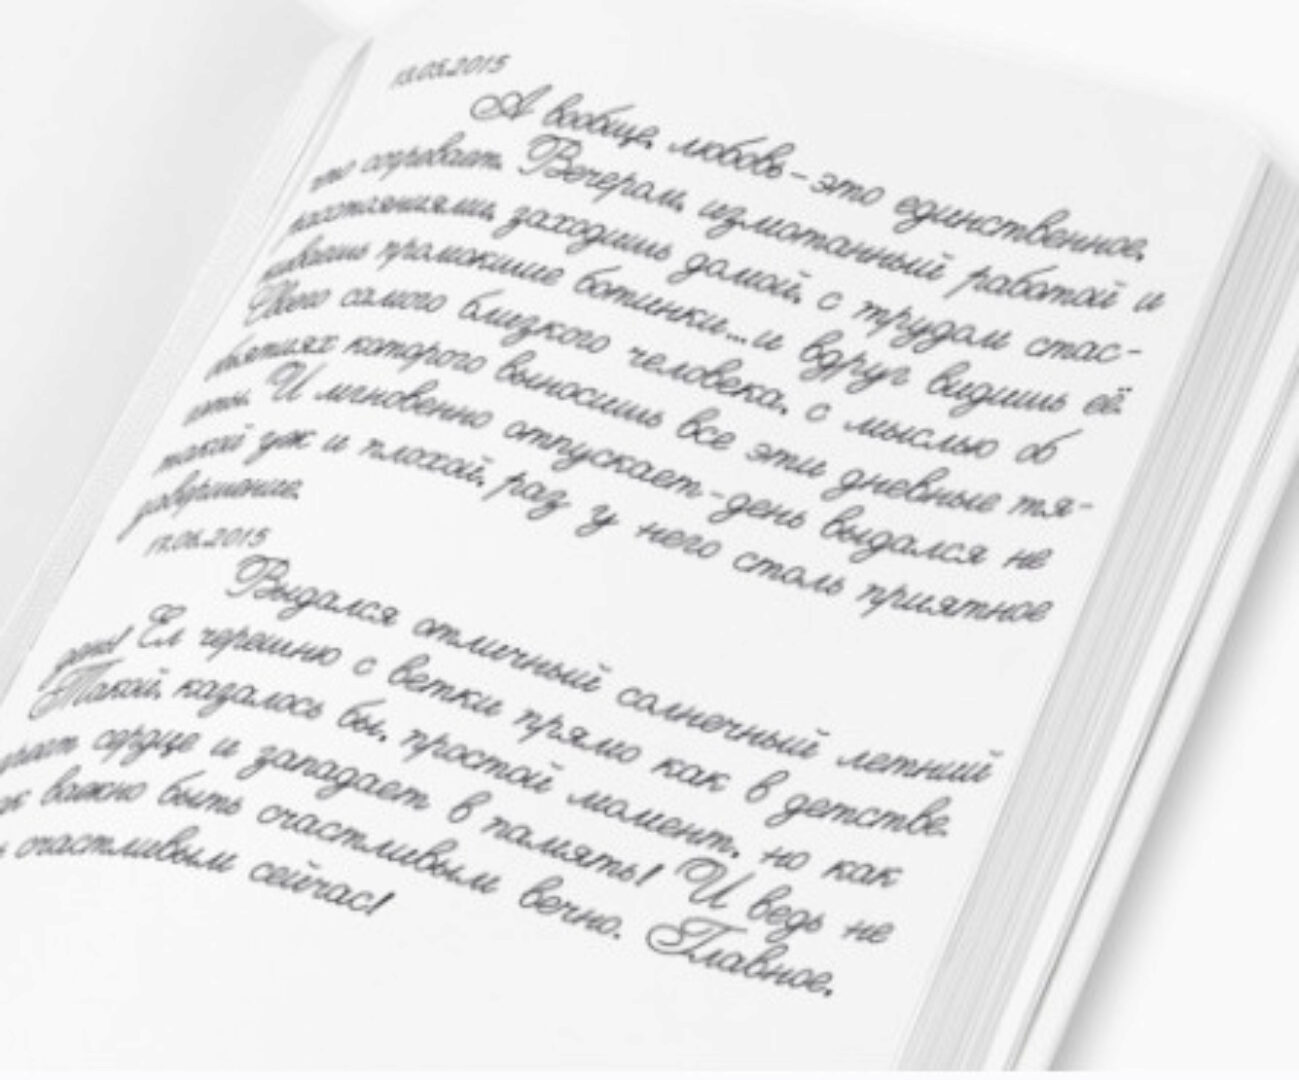 13.05.2015
А вообще, любовь - это единственное,
что согревает. Вечером, измотанный работой и
расстояниями, заходишь домой, с трудом стас-
киваешь промокшие ботинки... и вдруг видишь её.
Твоего самого близкого человека, с мыслью об
объятиях которого выносишь все эти дневные тя-
готы. И мгновенно отпускает - день выдался не
такой уж и плохой, раз у него столь приятное
завершение.
17.06.2015
Выдался отличный солнечный летний
день! Ел черешню с ветки прямо как в детстве.
Такой, казалось бы, простой момент, но как
сердце и западает в память! И ведь не
так важно быть счастливым вечно. Главное,
счастливым сейчас!